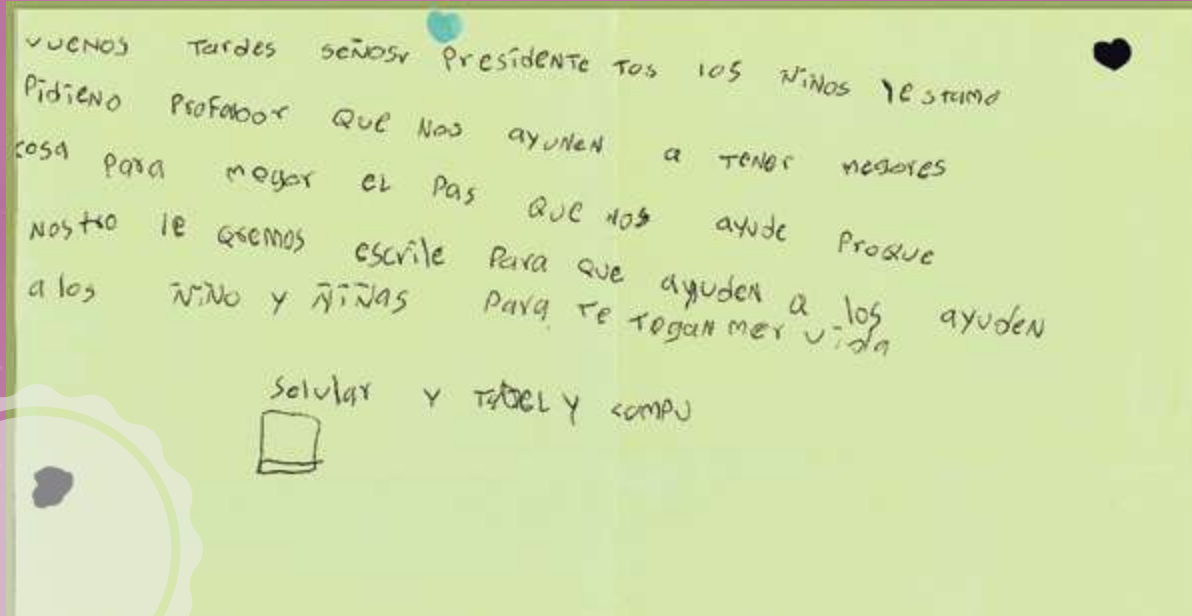 vuenos Tardes señosr Presidente Tos los Niños le stamo
Pidieno Profabor Que Nos ayunen a Tener megores
cosa Para megor el Pas Que nos ayude Proque
Nostro le qremos escrile Para que ayuden a los ayuden
a los Niño y Ñiñas Para Te Togan mer vida
Selular y Tabel y compu